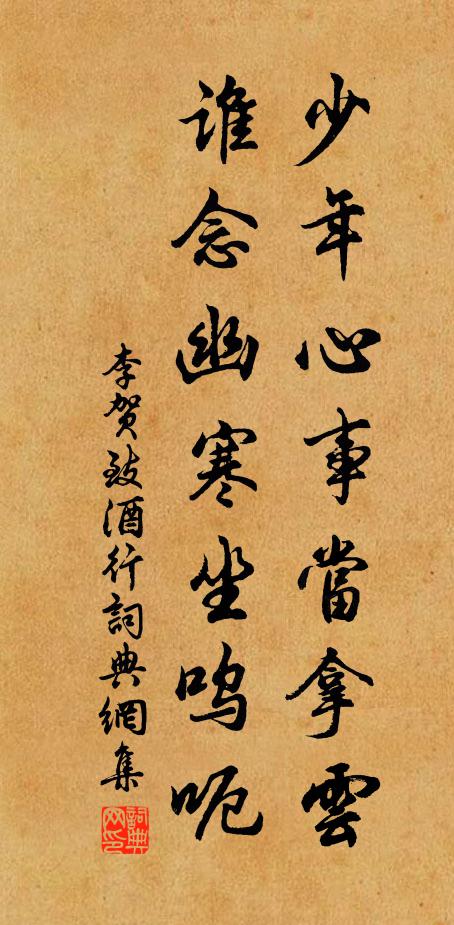 少年心事當拿雲
谁念幽寒坐呜呃
李贺致酒行詞典網集
詞典网印